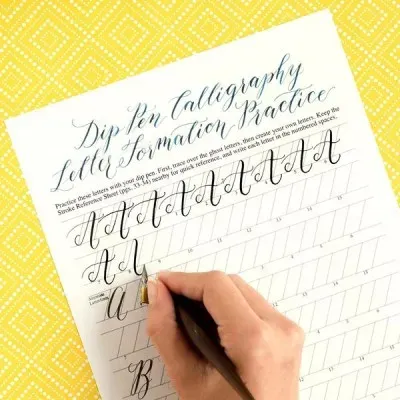 Dip Pen Calligraphy
Letter Formation Practice
Practice these letters with your dip pen. First, trace over the ghost letters, then create your own letters. Keep the
Stroke Reference Sheet (pgs. 33-34) nearby for quick reference, and write each letter in the numbered spaces.
A A A A A A A A A
A
A
B